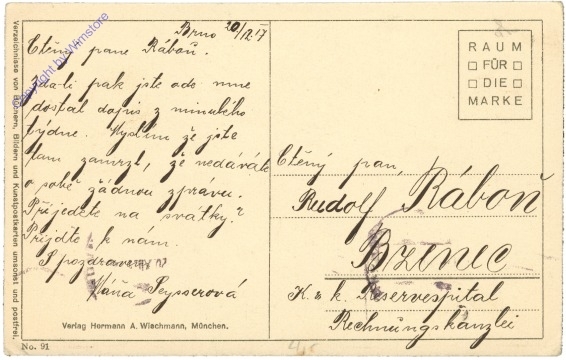 Brno 20/12 17
Ctěný pane Ráboň.
Zdali pak jste ode mne
dostal dopis z minulého
týdne. Myslím že jste
tam zamrzl, že nedáváte
o sobě žádnou zprávu.
Přijedete na svátky?
Přijďte k nám.
S pozdravem
Máňa Seysserová
Verlag Hermann A. Wiechmann, München.
No. 91
Verzeichnisse von Büchern, Bildern und Kunstpostkarten umsonst und postfrei.
Copyright by Wimstore
RAUM
FÜR
DIE
MARKE
Ctěný pan,
Rudolf Ráboň
Bzenec
K. u k. Reservespital
Rechnungskanzlei